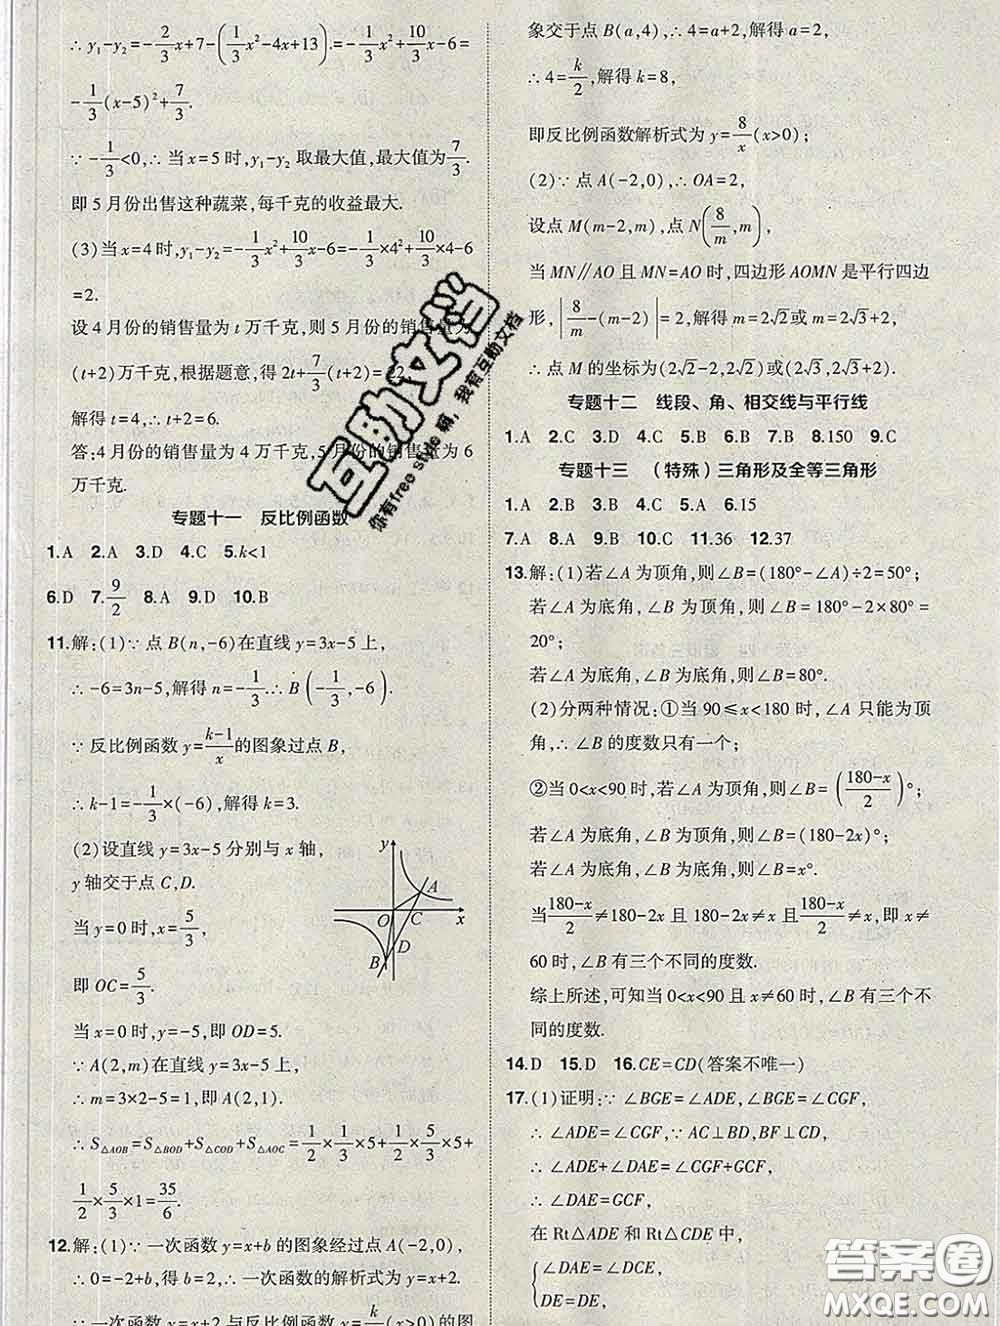 ∴ y₁-y₂=-2/3x+7-(1/3x²-4x+13).=-1/3x²+10/3x-6=
-1/3(x-5)²+7/3.
∵ -1/3<0,∴ 当 x=5 时,y₁-y₂ 取最大值,最大值为7/3.
即 5 月份出售这种蔬菜,每千克的收益最大.
(3)当 x=4 时,y₁-y₂=-1/3x²+10/3x-6=-1/3×4²+10/3×4-6
=2.
设 4 月份的销售量为 t 万千克,则 5 月份的销售量为
(t+2)万千克,根据题意,得 2t+7/3(t+2)=
解得 t=4,∴ t+2=6.
答:4 月份的销售量为 4 万千克,5 月份的销售量为 6
万千克.
专题十一 反比例函数
1.A 2.A 3.D 4.C 5.k<1
6.D 7.9/2 8.A 9.D 10.B
11.解:(1)∵ 点 B(n,-6)在直线 y=3x-5 上,
∴ -6=3n-5,解得 n=-1/3.∴ B(-1/3,-6).
∵ 反比例函数 y=(k-1)/x的图象过点 B,
∴ k-1=-1/3×(-6),解得 k=3.
(2)设直线 y=3x-5 分别与 x 轴,
y 轴交于点 C,D.
当 y=0 时,x=5/3,
即 OC=5/3.
当 x=0 时,y=-5,即 OD=5.
∵ A(2,m)在直线 y=3x-5 上,
∴ m=3×2-5=1,即 A(2,1).
∴ S△AOB=S△BOD+S△COD+S△AOC=1/2×1/3×5+1/2×5/3×5+
1/2×5/3×1=35/6.
y
A
O
C
x
D
B
12.解:(1)∵ 一次函数 y=x+b 的图象经过点 A(-2,0),
∴ 0=-2+b,得 b=2,∴ 一次函数的解析式为 y=x+2.
∵ 一次函数 y=x+2 与反比例函数 y=k/x(x>0)的图
象交于点 B(a,4),∴ 4=a+2,解得 a=2,
∴ 4=k/2,解得 k=8,
即反比例函数解析式为 y=8/x(x>0);
(2)∵ 点 A(-2,0),∴ OA=2,
设点 M(m-2,m),点 N(8/m,m),
当 MN∥AO 且 MN=AO 时,四边形 AOMN 是平行四边
形,|8/m-(m-2)|=2,解得 m=2√2或 m=2√3+2,
∴ 点 M 的坐标为(2√2-2,2√2)或(2√3,2√3+2).
专题十二 线段、角、相交线与平行线
1.A 2.C 3.D 4.C 5.B 6.B 7.B 8.150 9.C
专题十三 （特殊）三角形及全等三角形
1.A 2.C 3.B 4.D 5.A 6.15
7.A 8.A 9.B 10.C 11.36 12.37
13.解:(1)若∠A 为顶角,则∠B=(180°-∠A)÷2=50°;
若∠A 为底角,∠B 为顶角,则∠B=180°-2×80°=
20°;
若∠A 为底角,∠B 为底角,则∠B=80°.
(2)分两种情况:①当 90≤x<180 时,∠A 只能为顶
角,∴ ∠B 的度数只有一个;
②当 0<x<90 时,若∠A 为顶角,则∠B=((180-x)/2)°;
若∠A 为底角,∠B 为顶角,则∠B=(180-2x)°;
若∠A 为底角,∠B 为底角,则∠B=x°.
当(180-x)/2≠180-2x 且 180-2x≠x 且(180-x)/2≠x,即 x≠
60 时,∠B 有三个不同的度数.
综上所述,可知当 0<x<90 且 x≠60 时,∠B 有三个不
同的度数.
14.D 15.D 16.CE=CD(答案不唯一)
17.(1)证明:∵ ∠BGE=∠ADE,∠BGE=∠CGF,
∴ ∠ADE=∠CGF,∵ AC⊥BD,BF⊥CD,
∴ ∠ADE+∠DAE=∠CGF+GCF,
∴ ∠DAE=GCF,
在 Rt△ADE 和 Rt△CDE 中,
∠DAE=∠DCE,
DE=DE,
互助文档
你有free style 啊，我有互助文档
答案圈
MXQE.COM